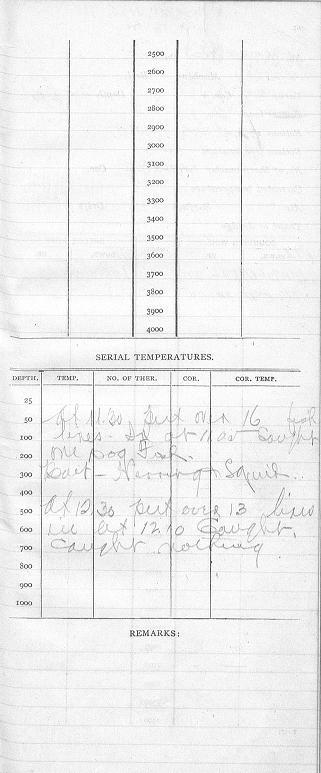 2500
2600
2700
2800
2900
3000
3100
3200
3300
3400
3500
3600
3700
3800
3900
4000
SERIAL TEMPERATURES.
DEPTH. TEMP. NO. OF THER. COR. COR. TEMP.
25
50
100
200
300
400
500
600
700
800
900
1000
At 11.30 put over 16
lines - at 11 caught
one Dog Fish
Bait - Herring & Squid
At 12.30 put over 13 lines
12.10 Caught
Caught nothing
REMARKS: